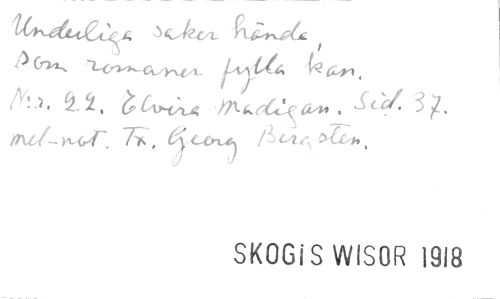 Underliga saker hända,
som romaner fylla kan.
N:r. 22. Elvira Madigan. Sid. 37.
mel-not. Tx. Georg Bergsten.
SKOGiS WISOR 1918